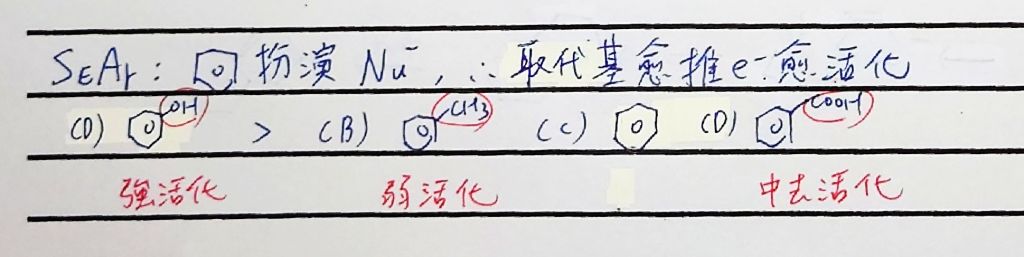 SEAr: 扮演 Nu⁻, ∴ 取代基愈推e⁻愈活化
(D) OH > (B) CH3 (C) (D) COOH
強活化 弱活化 中去活化